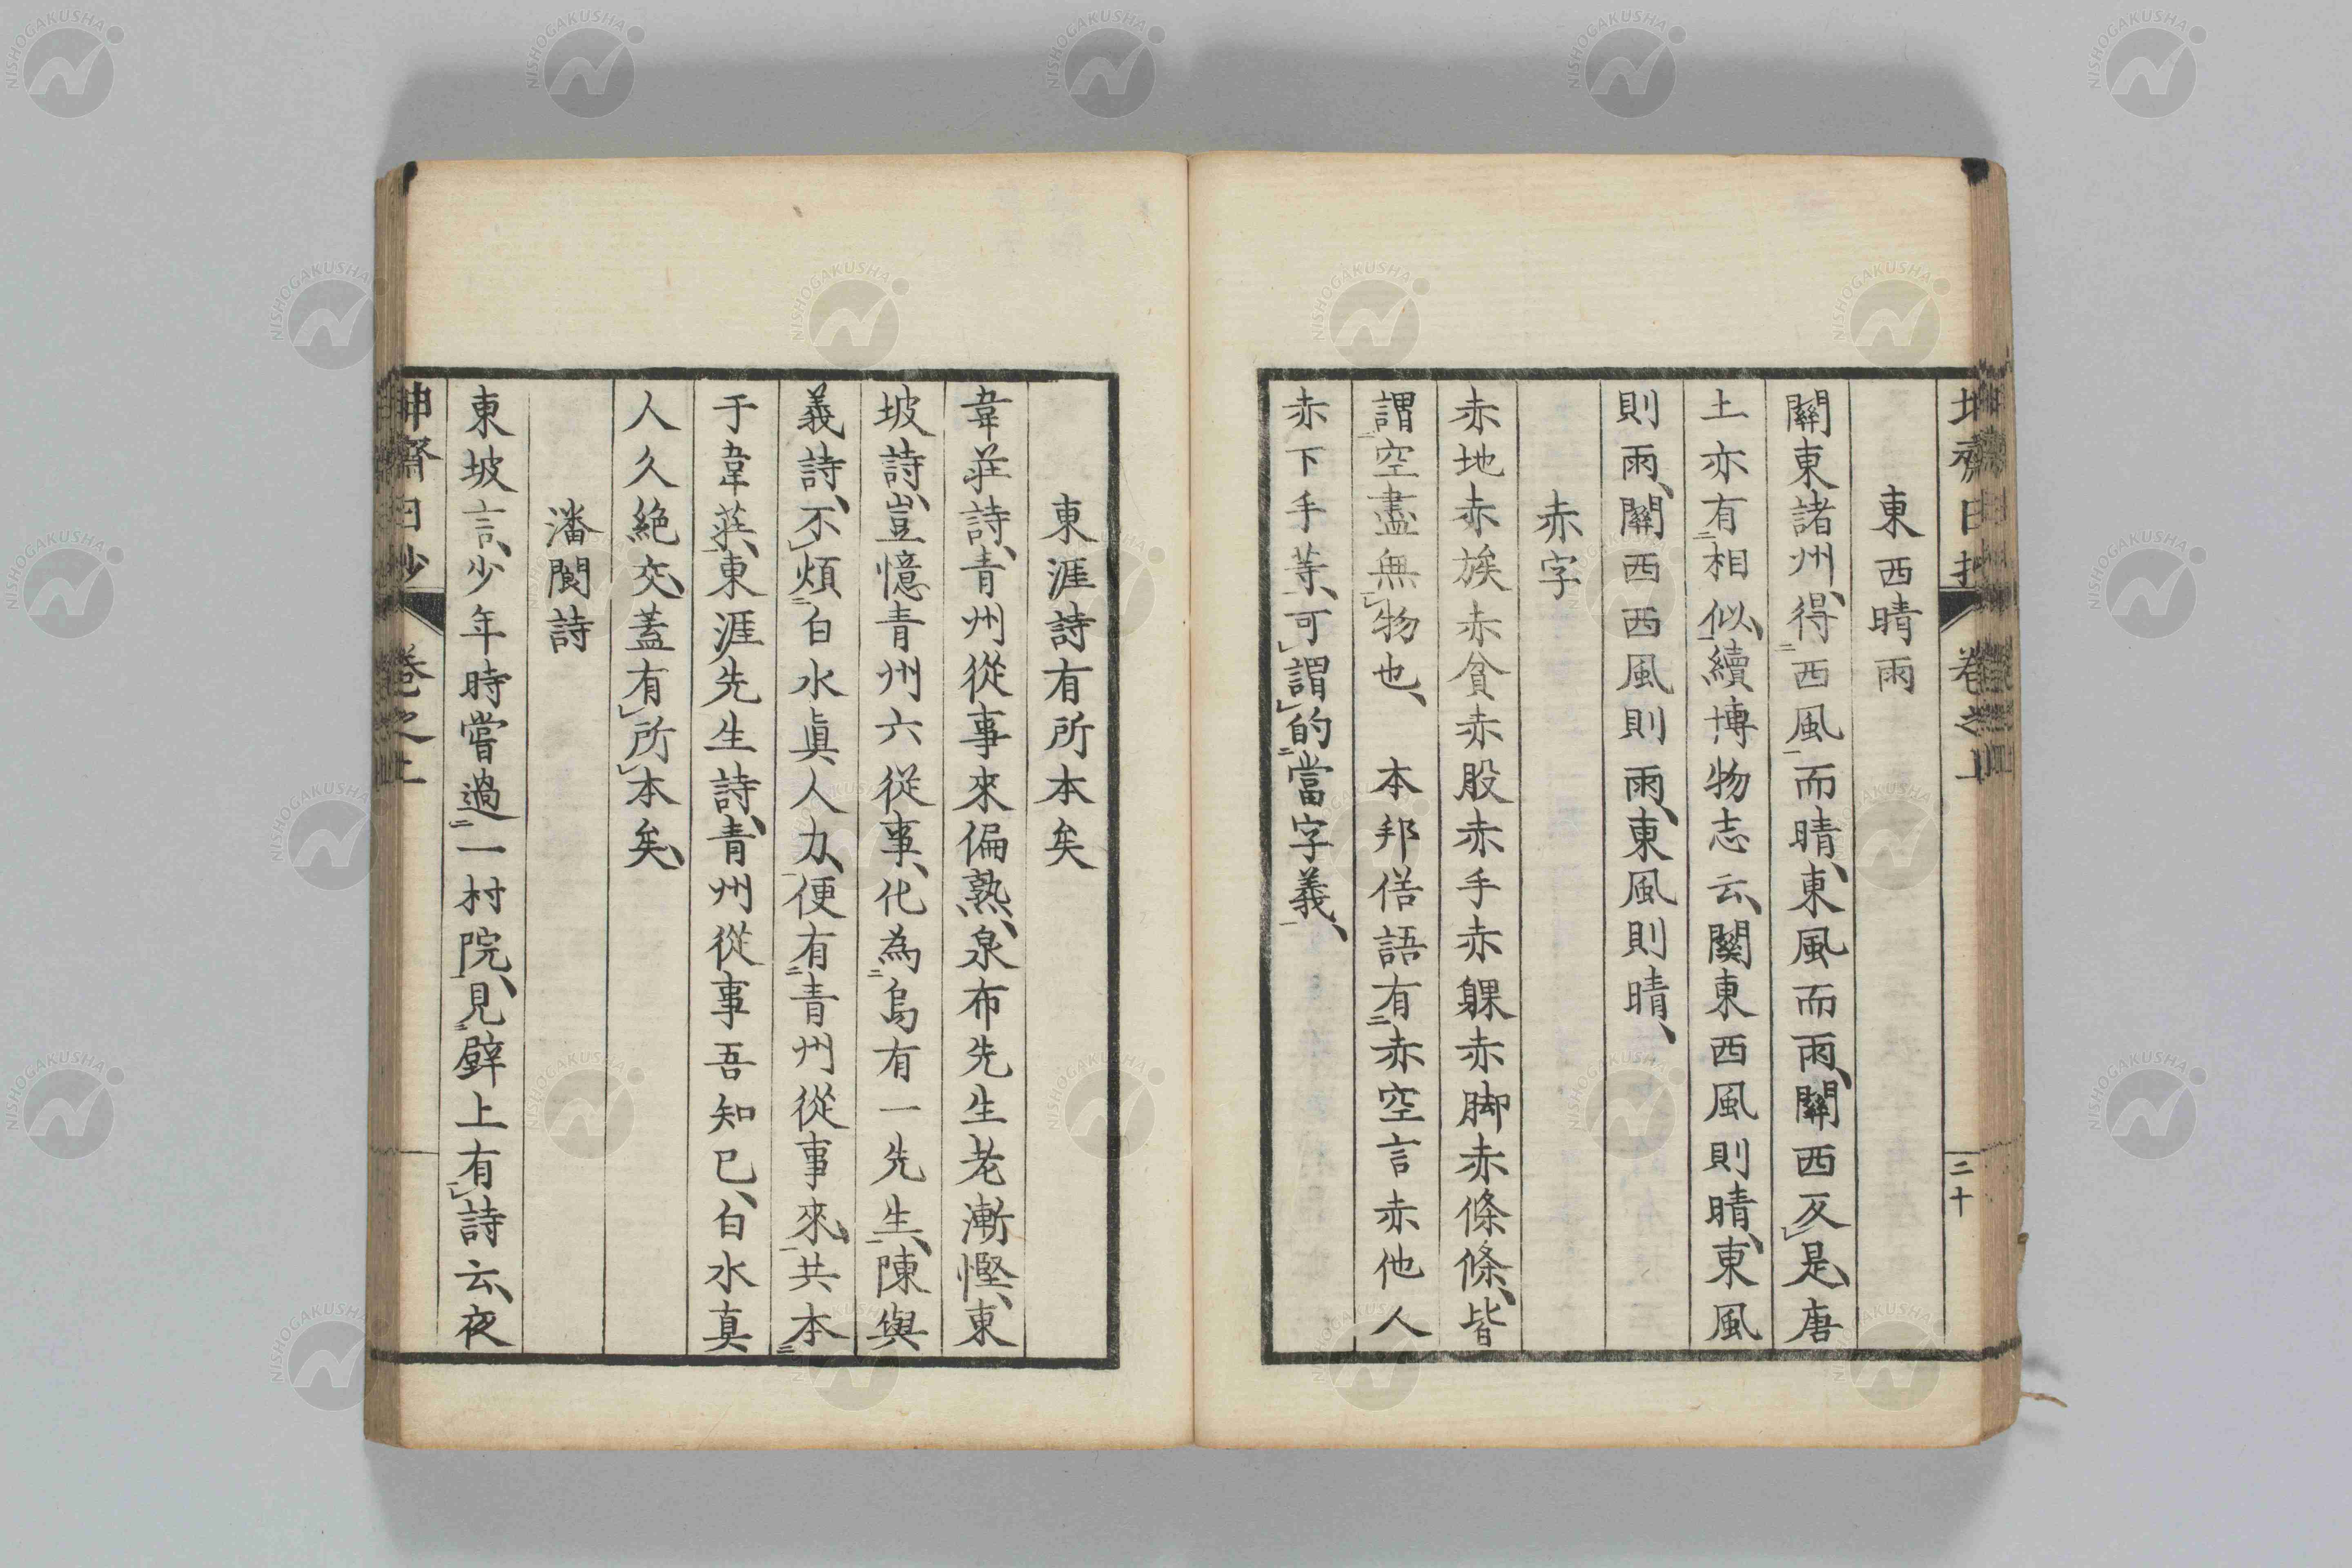 東西晴雨
關東諸州、得二西風一而晴、東風而雨、關西反レ是、唐
土亦有二相似一、續博物志云、關東西風則晴、東風
則雨、關西西風則雨、東風則晴、
赤字
赤地赤族赤貧赤股赤手赤躶赤脚赤條條、皆
謂二空盡無一レ物也、本邦俗語有二赤空言赤他人
赤下手等、可レ謂レ的二當字義一、
二十
東涯詩有所本矣
韋莊詩、青州從事來偏熟、泉布先生老漸慳、東
坡詩、豈憶青州六從事、化為二烏有一先生一、陳與
義詩、不レ煩二白水眞人力一、便有二青州從事來一、共本二
于韋莊、東涯先生詩、青州從事吾知已、白水真
人久絶交、蓋有レ所レ本矣、
潘閬詩
東坡言、少年時嘗過二一村院一、見二壁上有一レ詩云、夜
坤齋日抄 卷之上